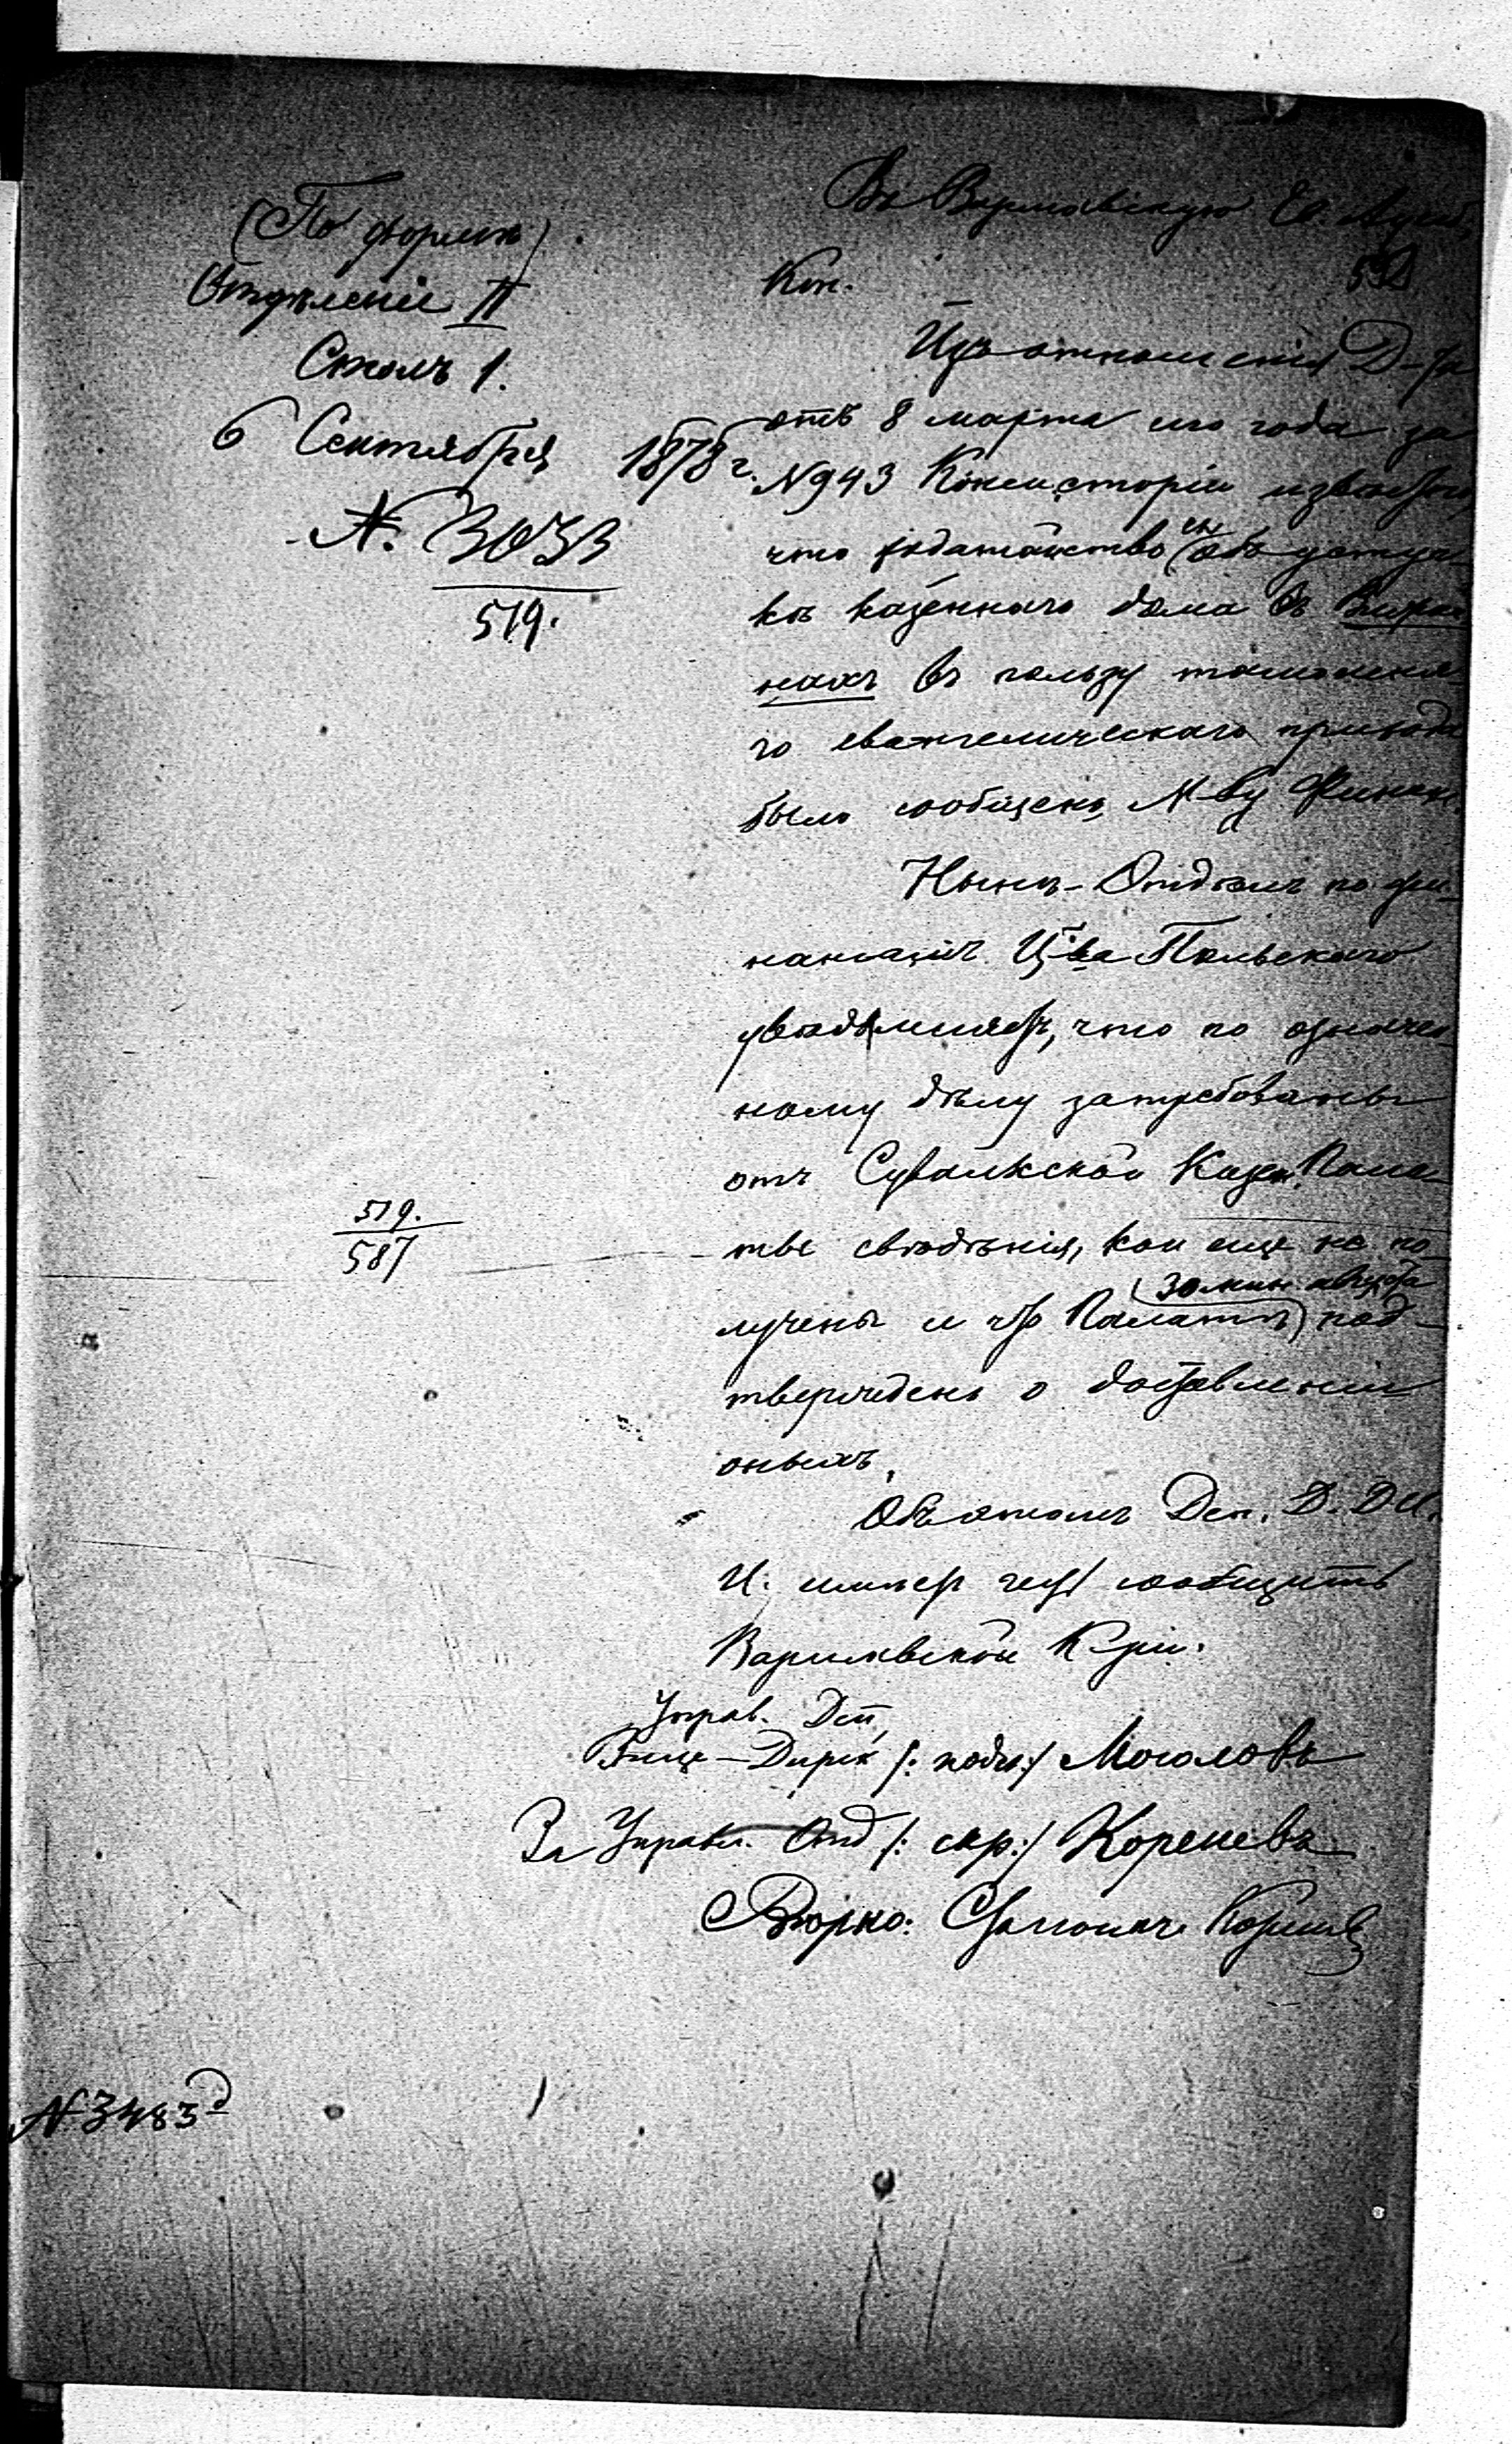 (По формѣ)
Отдѣленіе II
Столъ 1.
6 Сентября 1878 г.
№ 3033
519.
519.
587
№ 3483
Въ Варшавскую Ев. Аугсб.
Кон.
Изъ отношенія Д-та
отъ 8 марта сего года за
№ 943 Консисторіи извѣстно,
что ходатайство ея объ уступ-
кѣ казеннаго дома въ
нахъ въ пользу тамошня-
го евангелическаго прихода
было сообщено М-ву Финан.
Нынѣ Отдѣлъ по фи-
нансамъ Ц-ва Польскаго
увѣдомляетъ, что по означен-
ному дѣлу затребованы
отъ Сувалкской Казен. Пала-
ты свѣдѣнія, кои еще не по-
лучены и что Палатѣ 30 мин. августа под-
тверждено о доставленіи
оныхъ.
Объ этомъ Деп. Д. Д. И.
И. имѣетъ честь сообщить
Варшавской К-ріи.
Управ. Деп.
Вице-Дирек /: подп:/ Мосоловъ
За Управл. Отд /: скр:/ Кореневъ
Вѣрно: